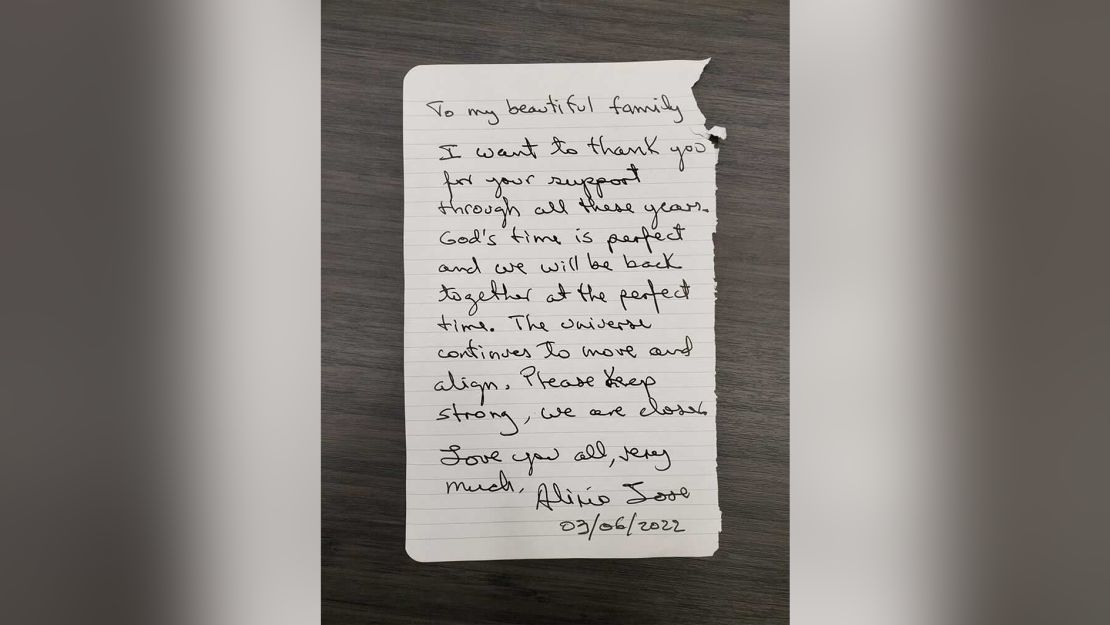 To my beautiful family
I want to thank you
for your support
through all these years.
God's time is perfect
and we will be back
together at the perfect
time. The universe
continues to move and
align. Please keep
strong, we are close.
Love you all, very
much. Alirio Jose
03/06/2022